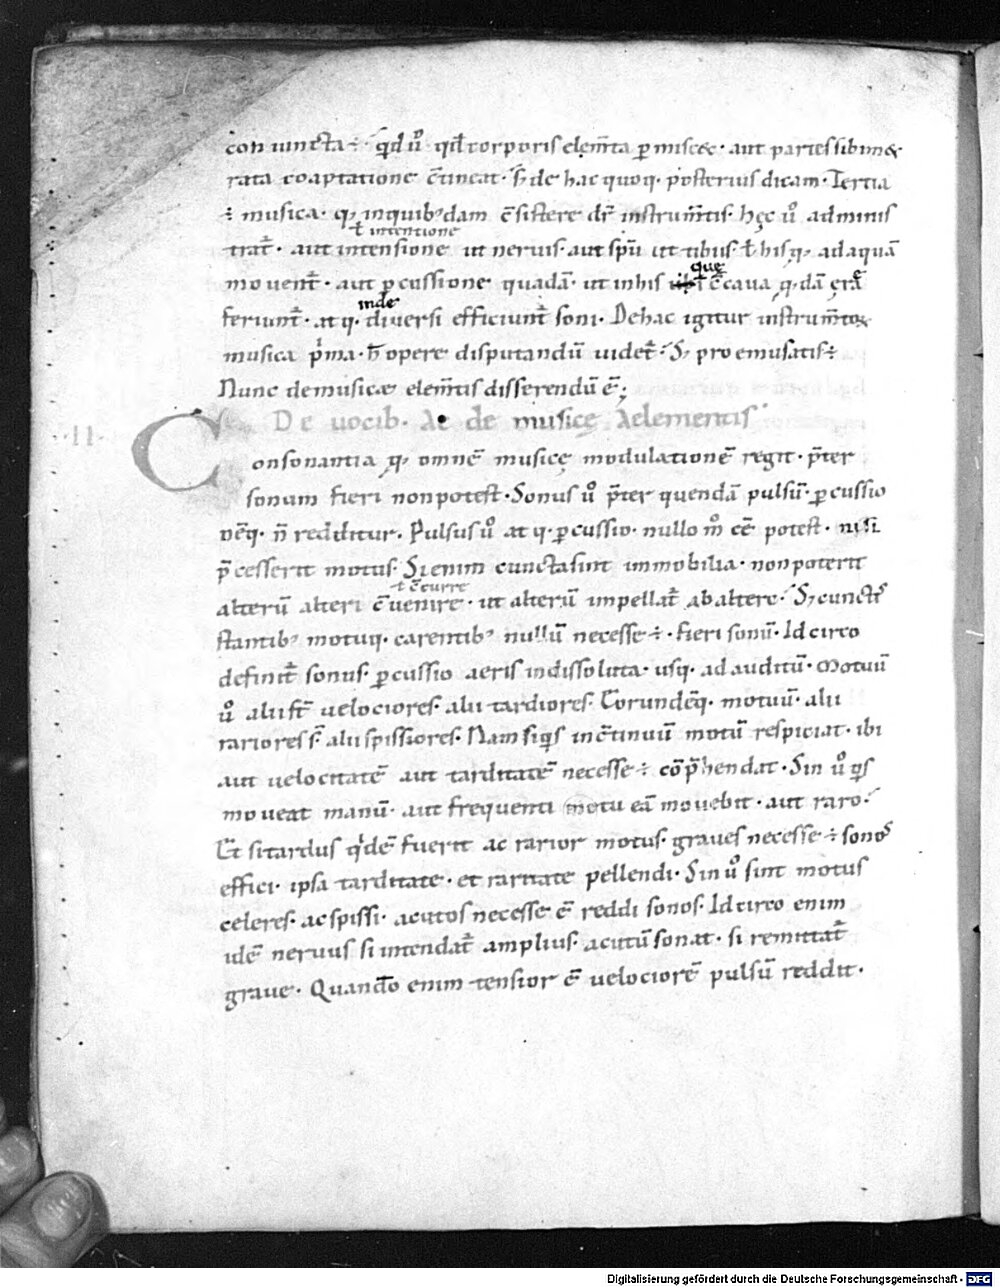 coniuncta ÷ · qd ů qıł corporis elem̄ta ꝑmiscet · aut partes sibimet
rata coaptatione c̄tineat · S; de hac quoq· posterius dicam · Tertia
÷ musica · q; inquib; dam c̄sistere dr̄ instrum̄tis · hęc ů adminis
ł intentione
trat̄ · aut intensione ut neruis · aut spū ut tibiis ł his q; ad aquā
que
mouent̄ · aut ꝑcussione quadā · ut in his c̄caua q;dā ęrea
inde
feriunt̄ · at q· diuersi efficiunt̄ soni · De hac igitur instrum̄toꝝ
musica p̄ma · h̄ opere disputandū uidet̄ · S; proemii satis ÷
Nunc de musicæ elem̄tis disserendū ē;
·II· De uocib· Ac de musicę aelementis
Consonantia q; omnē musicę modulationē regit · p̄ter
sonum fieri non potest · Sonus ů p̄ter quendā pulsū · ꝑcussio
nēq· n̄ redditur · Pulsus ů at q· ꝑcussio · nullo m̊ eē potest · nisi
p̄cesserit motus · Si enim cuncta sint immobilia · non poterit
ł c̄currere
alterū alteri c̄uenire · ut alterū impellat̄ ab altero · S; cunctis
stantib; motuq· carentib; nullū necesse ÷ · fieri sonū · Idcirco
definit̄ sonus · ꝑcussio aeris indissoluta · usq· ad auditū · Motuū
ů alii st̄ uelociores · alii tardiores · Eorundēq· motuū · alii
rariores s̄ alii spissiores · Nam si q̇s in c̄tinuū motū respiciat · ibi
aut uelocitatē aut tarditatē necesse ÷ cōp̄hendat · Sin ů q̇s
moueat manū · aut frequenti motu eā mouebit · aut raro ·
Et si tardus q̇dē fuerit ac rarior motus · graues necesse ÷ sonos
effici · ipsa tarditate · et raritate pellendi · Sin ů sint motus
celeres · ac spissi · acutos necesse ē reddi sonos · Idcirco enim
idē neruus si intendat̄ amplius · acutū sonat · si remittat̄
graue · Quando enim tensior ē uelociorē pulsū reddit ·
Digitalisierung gefördert durch die Deutsche Forschungsgemeinschaft - DFG